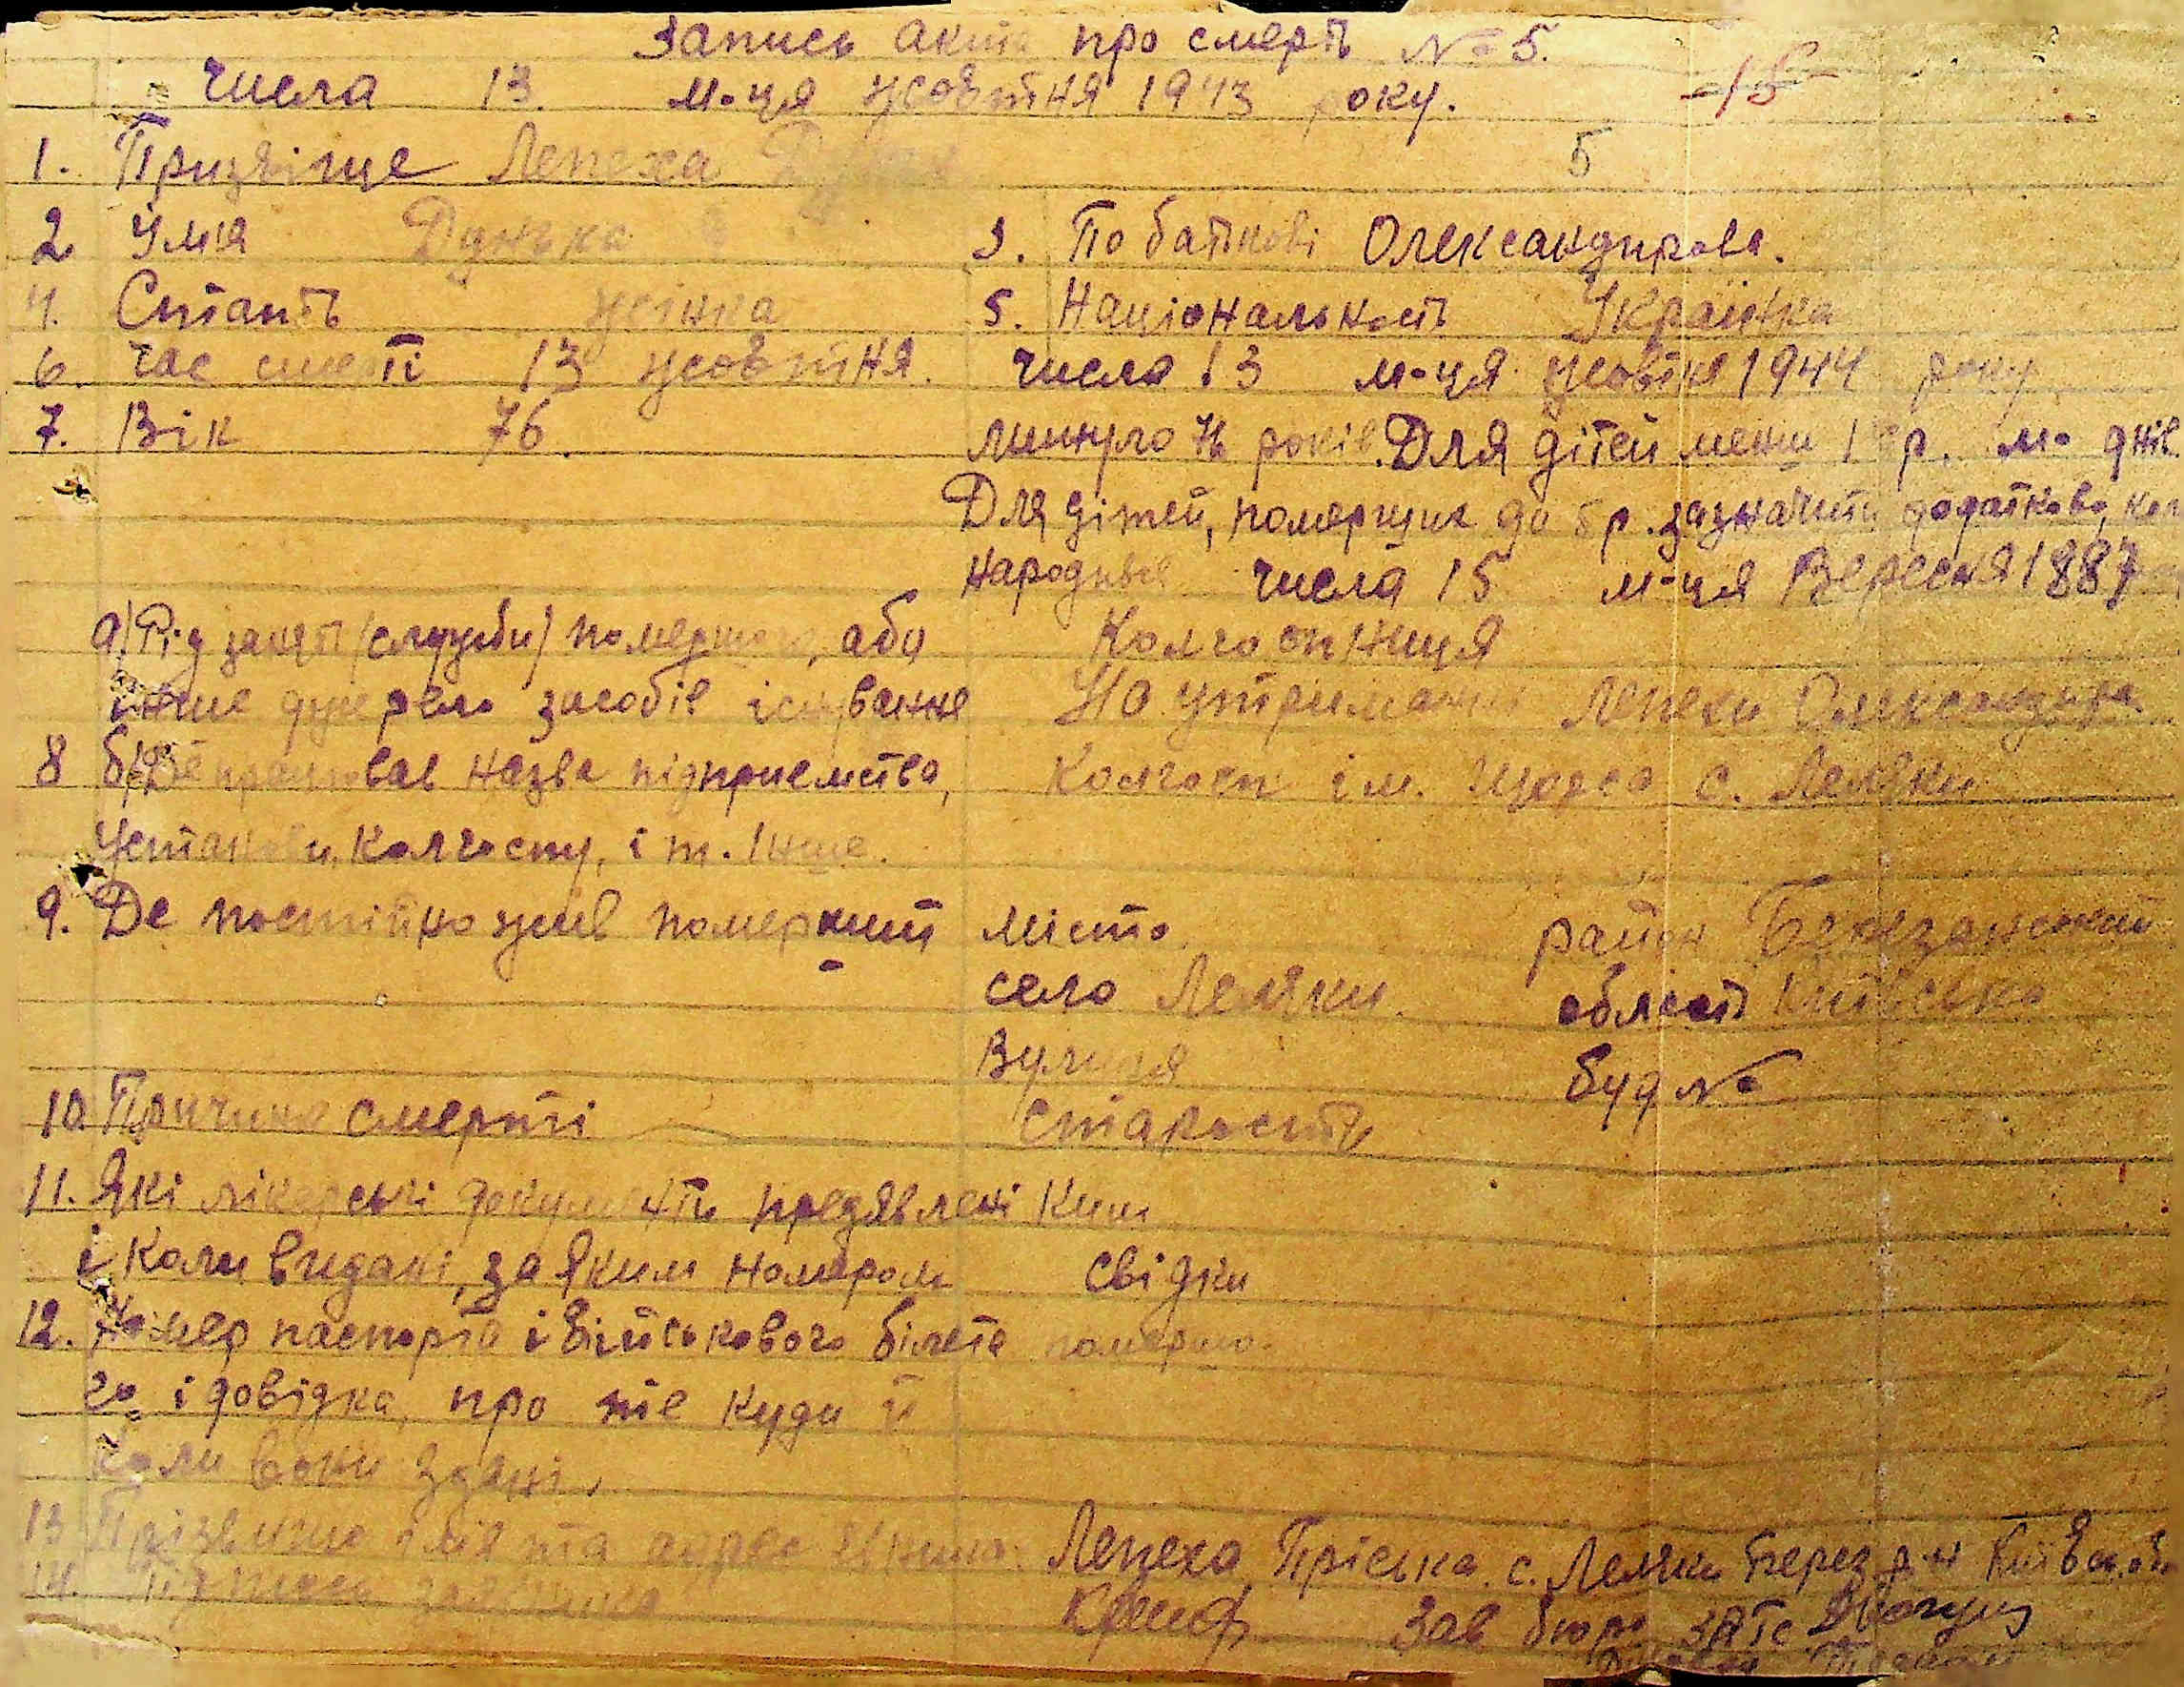 Запись акта про смерть №5.
числа 13 м-ця жовтня 1943 року.
15
5
1. Призвіще Лепеха
2 Имя Дунька 3. По батькові Олександрова.
4. Стать жінка 5. Національность Українка
6. Час смерті 13 жовтня. числа 13 м-ця жовтня 1944 року
7. Вік 76. минуло 76 років. Для дітей менш 1 р. м- днів
Для дітей, померших до 5 р. зазначити додатково, кол
народився числа 15 м-ця Вересня 1887
а) Рід занят (служби) помершого, або Колгоспниця
інше джерело засобів існування На утриманні Лепехи Олександра
8 б) Де працював назва підприємства, Колгосп ім. Щорса с. Лемяки
Установи, колгоспу, і т. інше.
9. Де постійно жив померший місто район Березанський
село Лемяки. область Київська
Вулиця буд №
10. Причина смерті старость
11. Які лікарські документи предявлені Ким
і коли видані, за яким номером свідки
12. Номер паспорта і військового білета помершо-
го і довідка, про те куди й
коли вони здані.
13 Прізвищо імя та адрес Лепеха Пріська. с. Лемяки Берез. р-н Київськ. об
14. Підпись заявника Зав бюро ЗАГС